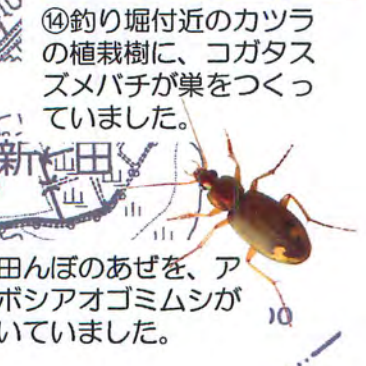 ⑭釣り堀付近のカツラ
の植栽樹に、コガタス
ズメバチが巣をつくっ
ていました。
新田
山
山
田んぼのあぜを、ア
ボシアオゴミムシが
いていました。